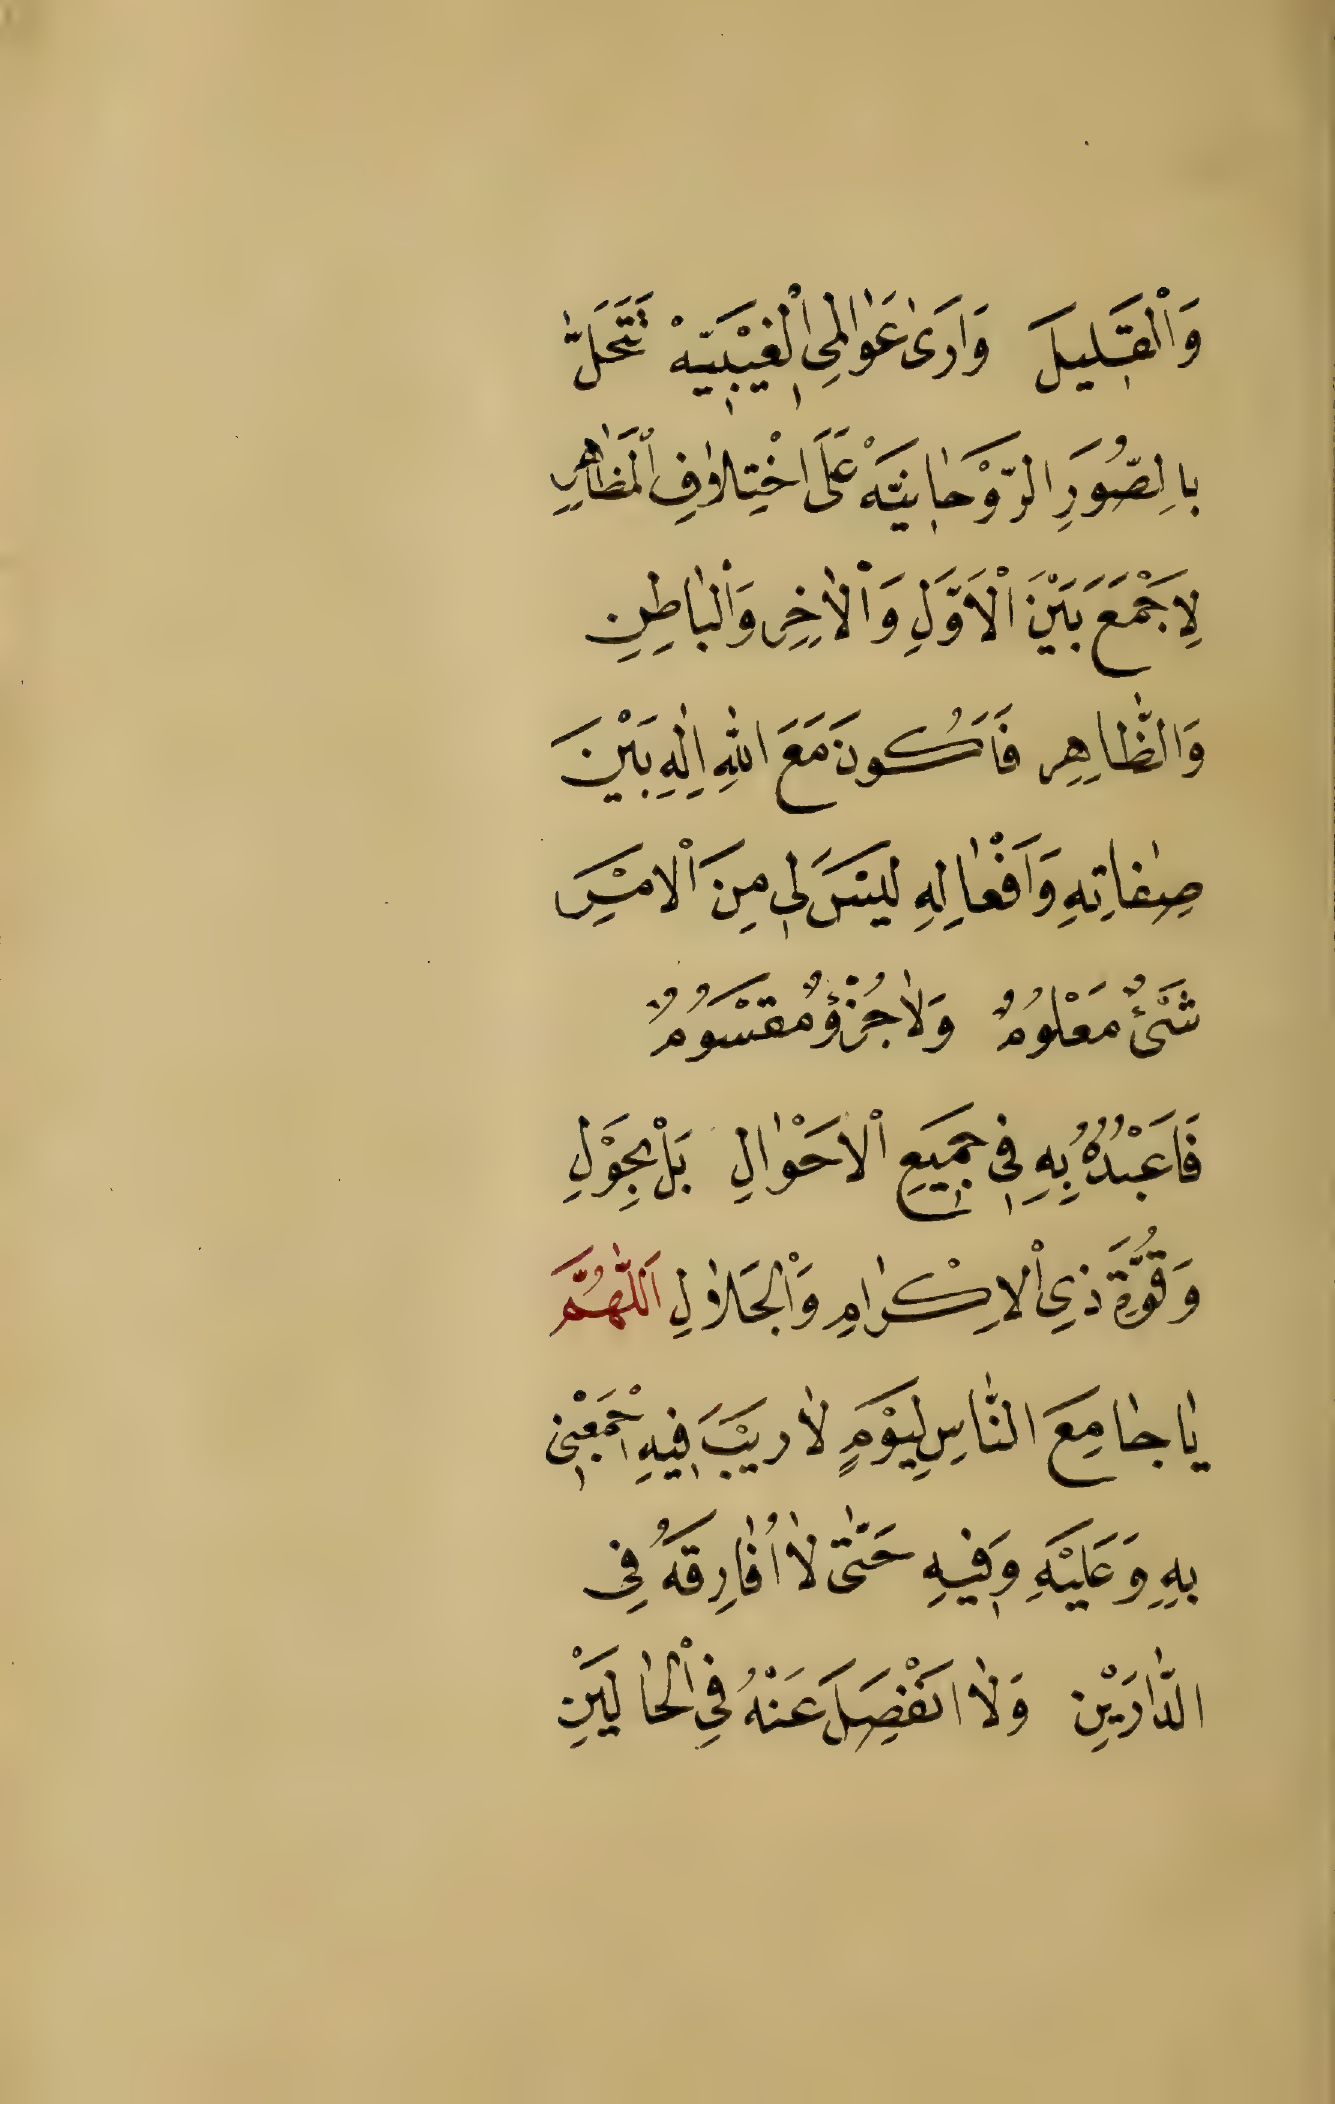 وَالْقَلِيلَ وَارَىٰ عَوٰالِمِي الْغَيْبِيَّةْ تَتَحَلَّ
بالِصُّوَرِ الرَّوْحٰانِيَّةْ عَلَى اخْتِلاٰفِ الْمَظٰاهِرِ
لِاَجْمَعَ بَيْنَ الْاَوَّلِ وَالْاٰخِرِ وَالْبٰاطِنِ
وَالظّٰاهِرِ فَاَكُونَ مَعَ اللهِ اِلٰهِ بَيْنَ
صِفٰاتِهِ وَاَفْعٰالِهِ لَيْسَ لِي مِنَ الْامْرِ
شَئٌ مَعْلُومٌ وَلاٰ جُزْؤٌ مَقْسُومٌ
فَاَعْبُدُهُ بِهِ فِي جَمِيعِ الْاَحْوٰالِ بَلْ بِحَوْلِ
وَقُوَّةِ ذِي الْاِكْرٰامِ وَالْجَلاٰلِ اَللّٰهُمَّ
يٰا جٰامِعَ النّٰاسِ لِيَوْمٍ لاٰ رَيْبَ فِيهِ اجْمَعْنِي
بِهِ وَعَلَيْهِ وَفِيهِ حَتّٰى لاٰ اُفٰارِقَهُ فِى
الدّٰارَيْنِ وَلاٰ انْفَصِلَ عَنْهُ فِي الْحٰالَيْنِ